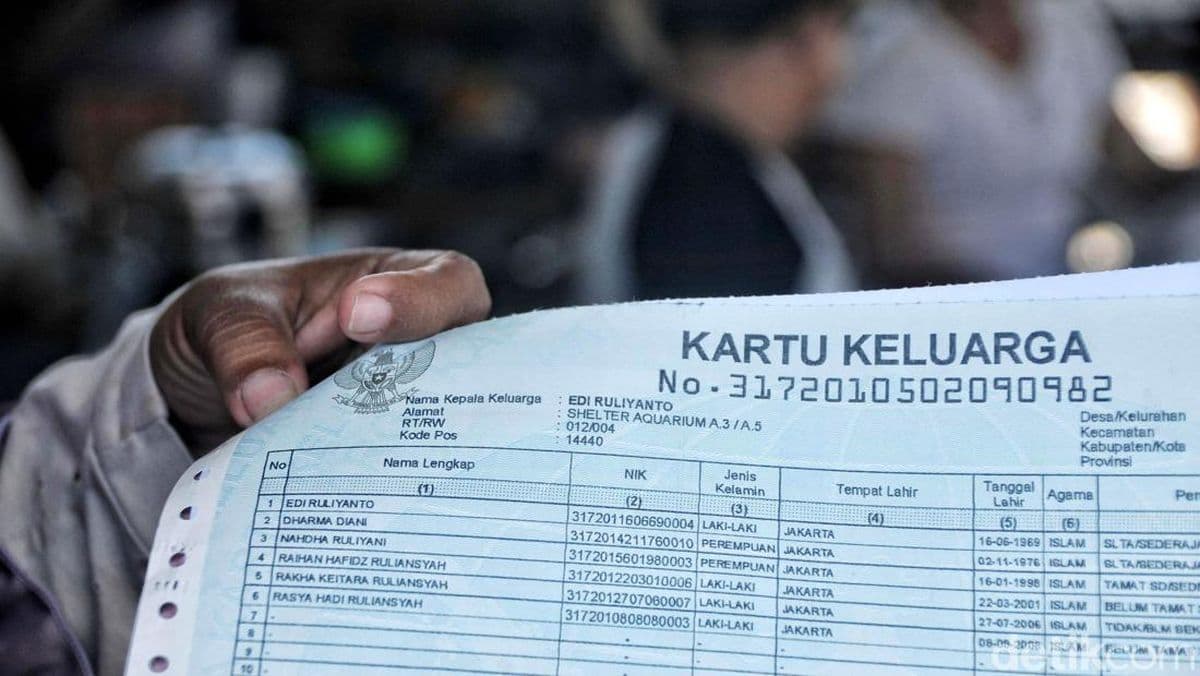 KARTU KELUARGA
No.3172010502090982
Nama Kepala Keluarga : EDI RULIYANTO
Alamat : SHELTER AQUARIUM A.3 / A.5
RT/RW : 012/004
Kode Pos : 14440
Desa/Kelurahan
Kecamatan
Kabupaten/Kota
Provinsi
No Nama Lengkap NIK Jenis Kelamin Tempat Lahir Tanggal Lahir Agama
(1) (2) (3) (4) (5) (6)
1 EDI RULIYANTO 3172011606690004 LAKI-LAKI JAKARTA 16-06-1969 ISLAM SLTA/SEDERAJA
2 DHARMA DIANI 3172014211760010 PEREMPUAN JAKARTA 02-11-1976 ISLAM SLTA/SEDERAJ
3 NAHDHA RULIYANI 3172015601980003 PEREMPUAN JAKARTA 16-01-1998 ISLAM TAMAT SD/SEDE
4 RAIHAN HAFIDZ RULIANSYAH 3172012203010006 LAKI-LAKI JAKARTA 22-03-2001 ISLAM BELUM TAMAT
5 RAKHA KEITARA RULIANSYAH 3172012707060007 LAKI-LAKI JAKARTA 27-07-2006 ISLAM TIDAK/BLM SEK
6 RASYA HADI RULIANSYAH 3172010808080003 LAKI-LAKI JAKARTA 08-08-2008 ISLAM BELUM TAMA
7 - -
8 - -
9 - -
10 -
detikcom